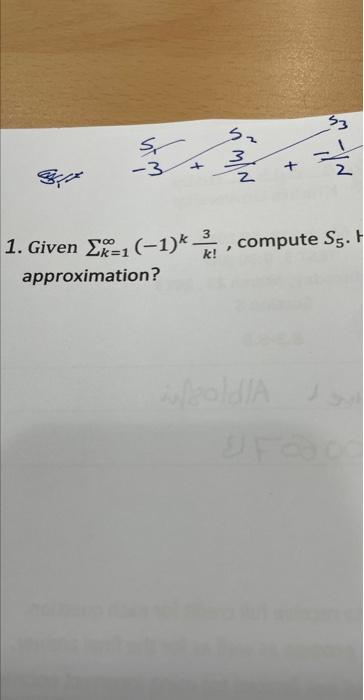 S₁ S₂ S₃
-3 + 3/2 + -1/2
1. Given ∑_{k=1}^{∞} (-1)^k 3/k! , compute S₅. H
approximation?